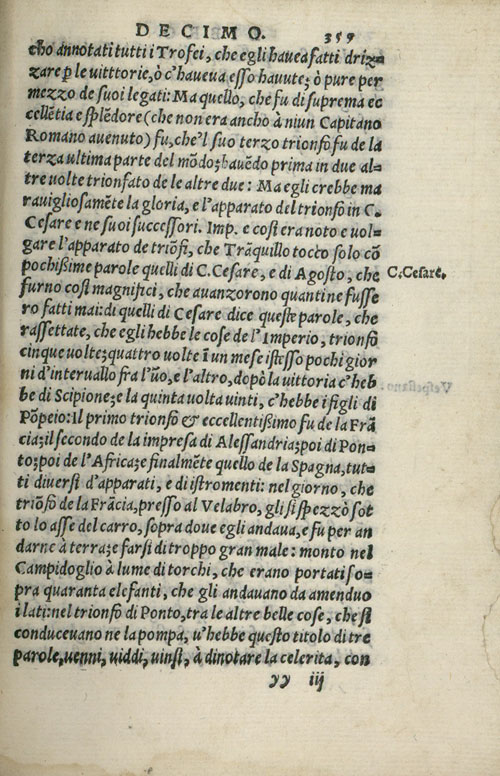 DECIMO. 359
cho annotati tutti i Trofei, che egli havea fatti driz=
zare p̱ le uitttorie, ò c'haveva esso havute; ò pure per
mezzo de suoi legati: Ma quello, che fu di suprema ec
cellẽtia e splẽdore (che non era ancho à niun Capitano
Romano avenuto) fu, che'l suo terzo trionfo fu de la
terza ultima parte del mõdo; havẽdo prima in due al=
tre uolte trionfato de le altre due: Ma egli crebbe ma
ravigliosamẽte la gloria, e l'apparato del trionfo in C.
Cesare e ne suoi successori. Imp. e cosi era noto e uol=
gare l'apparato de triõfi, che Trãquillo tocco solo cõ
pochißime parole quelli di C. Cesare, e di Agosto, che
C. Cesare.
furno cosi magnifici, che avanzorono quanti ne fusse
ro fatti mai: di quelli di Cesare dice queste parole, che
rassettate, che egli hebbe le cose de l'Imperio, trionfò
cinque uolte; quattro uolte ĩ un mese istesso pochi gior
ni d'interuallo fra l'ũo, e l'altro, dopò la uittoria c'heb
be di Scipione; e la quinta uolta uinti, c'hebbe i figli di
Põpeio: Il primo trionfo & eccellentißimo fu de la Frã
cia; il secondo de la impresa di Alessandria; poi di Pon=
to; poi de l'Africa; e finalmẽte quello de la Spagna, tut=
ti diversi d'apparati, e di istromenti: nel giorno, che
triõfò de la Frãcia, presso al Velabro, gli si spezzò sot
to lo asse del carro, sopra doue egli andaua, e fu per an
darne à terra; e farsi di troppo gran male: monto nel
Campidoglio à lume di torchi, che erano portati so=
pra quaranta elefanti, che gli andauano da amenduo
i lati: nel trionfo di Ponto, tra le altre belle cose, che si
conducevano ne la pompa, u'hebbe questo titolo di tre
parole, uenni, uiddi, uinsi, à dinotare la celerita, con
yy iij